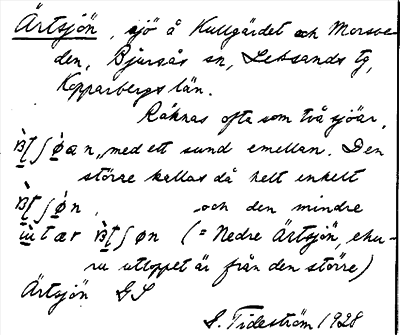 Ärtsjön, sjö å Kullgärdet och Morsbo-
den, Bjursås sn, Leksands tg,
Kopparbergs län.
Räknas ofta som två sjöar,
med ett sund emellan. Den
större kallas då helt enkelt
och den mindre
(= Nedre Ärtsjön, ehu-
ru utloppet är från den större)
Ärtsjön GS
S. Tideström 1928